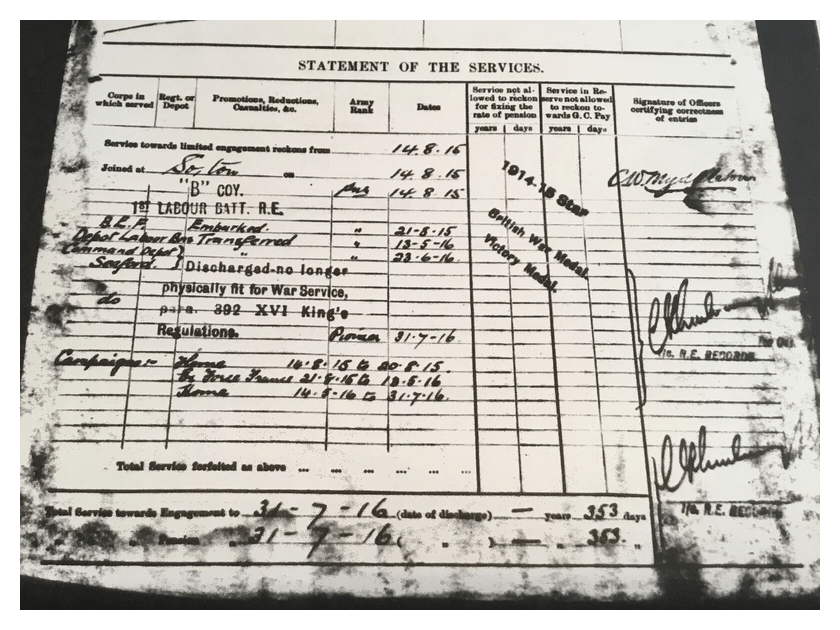 STATEMENT OF THE SERVICES.
Corps in which served
Regt. or Depot
Promotions, Reductions, Casualties, &c.
Army Rank
Dates
Service not allowed to reckon for fixing the rate of pension
Service in Reserve not allowed to reckon towards G. C. Pay
Signature of Officers certifying correctness of entries
years days years days
Service towards limited engagement reckons from 14.8.15
Joined at Soton on 14.8.15
"B" COY. 14.8.15
1ST LABOUR BATT. R.E.
1914-15 Star
British War Medal.
Victory Medal.
B.E.F. Embarked. " 21-8-15
Depot Labour Bns Transferred " 13-5-16
Command Depot } " " 23-6-16
Seaford. } Discharged-no longer
do physically fit for War Service,
para. 392 XVI King's
Regulations. Pioneer 31-7-16.
i/c. R.E. RECORDS.
Campaigns:- Home 14.8.15 to 20.8.15.
Ex Force France 21.8.15 to 13.5.16
Home 14.5.16 to 31.7.16.
Total Service forfeited as above ... ... ... ...
Total Service towards Engagement to 31-7-16 (date of discharge) — years 353 days
" " Pension " 31-7-16 ( " ) — " 353. "
i/c. R.E. RECORDS